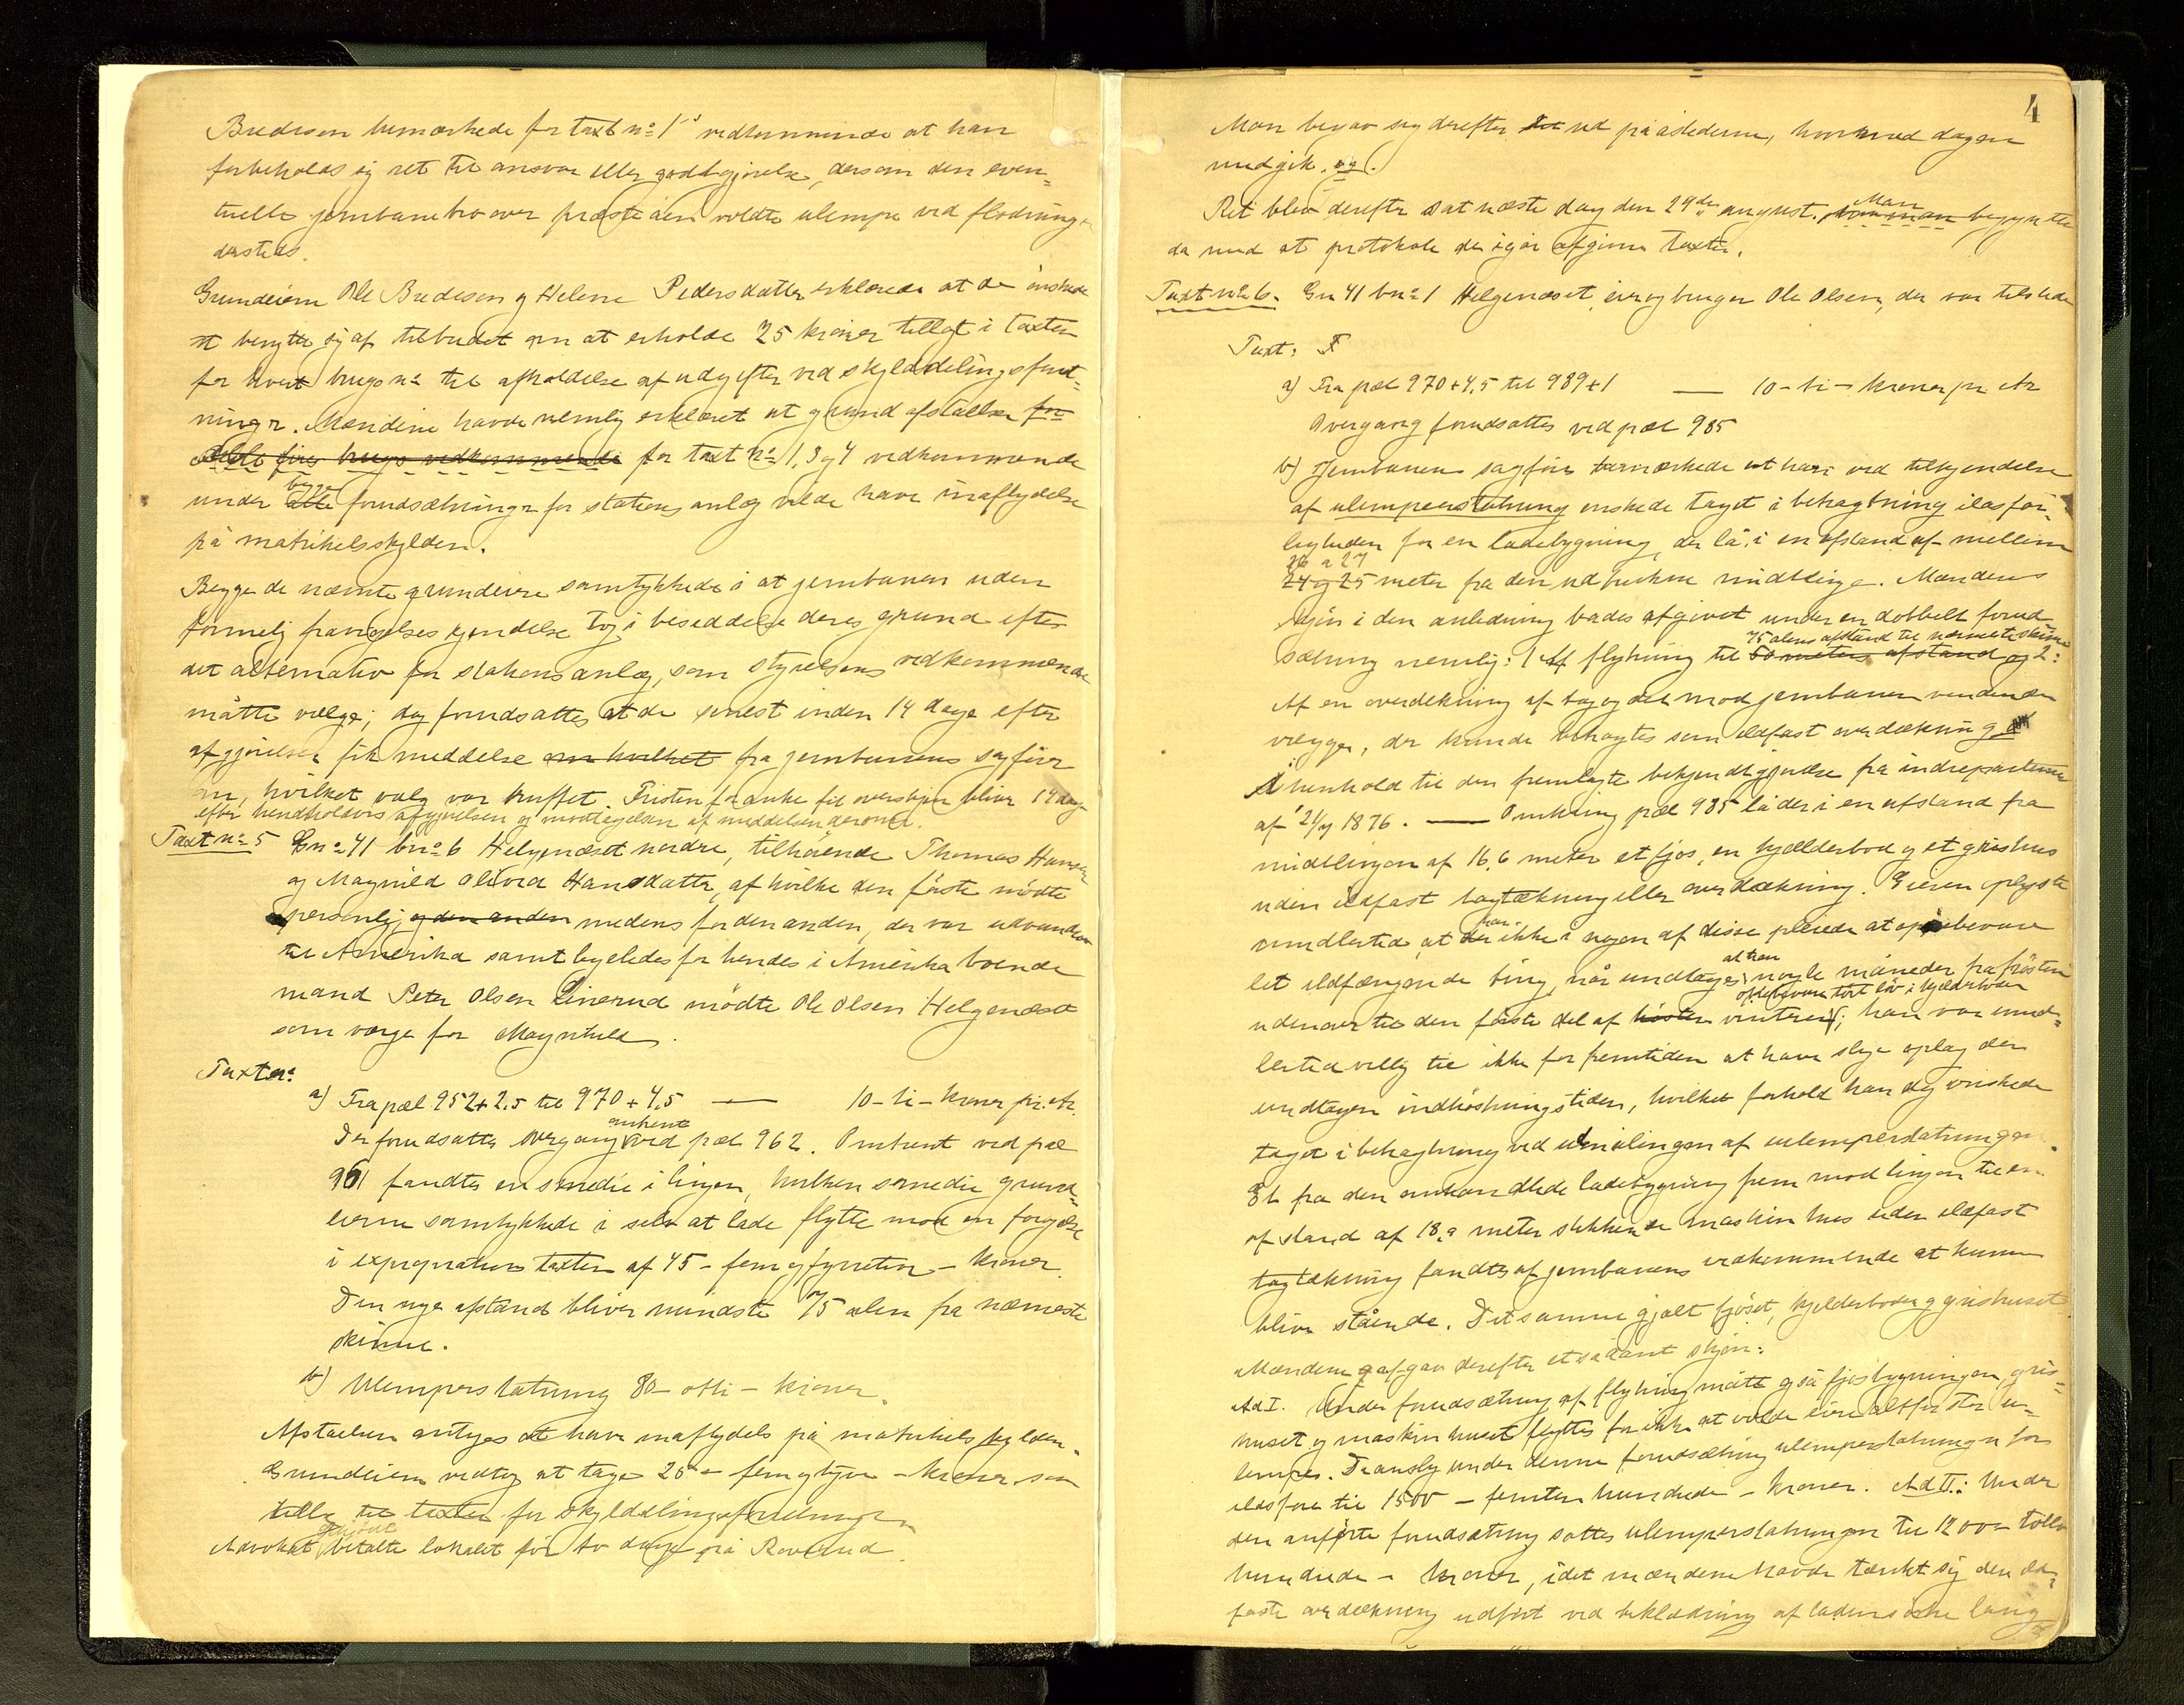 Bredesen bemærkede for taxt no 1's vedkommende at han
forbeholdt sig ret til ansvar eller godtgjørelse, dersom den even-
tuelle jernbanebro over præsteåen voldte ulempe ved flødning
dersteds.
Grundeierne Ole Bredesen og Helene Pedersdatter erklærede at de ønskede
at benytte sig af tilbudet om at erholde 25 kroner tillagt i taxten
for hvert brugsno til afholdelse af udgifter ved skylddelingsforret-
ninger. Mændene havde nemlig erklæret at grundafståelsen for
fire brugs vedkommende for taxt no 1, 3 og 4 vedkommende
under begge alle forudsætninger for stationsanlæg vilde have indflydelse
på matrikelskylden.
Begge de nævnte grundeiere samtykkede i at jernbanen uden
formelig fravigelseskjendelse tog i besiddelse deres grund efter
det alternativ for stationsanlæg, som styrelsens vedkommende
måtte vælge; dog forudsattes at de senest inden 14 dage efter
afgjørelsen fik meddelelse om hvilket fra jernbanens sagfører
om, hvilket valg var truffet. Fristen for anke til overskjøn bliver 14 dage
efter henholdsvis afgjørelsen og modtagelsen af meddelelsen derom.
Taxt no 5 Gno 41 bno 6 Helgenæset nordre, tilhørende Thomas Hansen
og Magnild Olivia Hansdatter, af hvilke den første mødte
personlig, og den anden medens for den anden, der var udvandret
til Amerika samt ligeledes for hendes i Amerika boende
mand Peter Olsen Linerud mødte Ole Olsen Helgenæset
som værge for Magnhild.
Taxter:
a) Fra pæl 952+2.5 til 970+4.5 — 10 - ti - kroner pr. Ar.
Der forudsattes overgang omkring ved pæl 962. Omtrent ved pæl
961 fandtes en smedie i linjen, hvilken smedie grund-
eierne samtykkede i selv at lade flytte mod en forøgelse
i expropriationstaxten af 45 - fem og fyrretive - kroner.
Den nye afstand bliver mindste 75 alen fra nærmeste
skinne.
b) Ulemperstatning 80 - otti - kroner.
Afståelsen antages at have indflydelse på matrikelskylden.
Grundeierne vedtog at tage 25 - fem og tyve - kroner som
tillæg til taxten for skylddelingsforretningen.
Advokat Gjødt betalte lokalet for to dage på Raverud.
4
Man begav sig derefter ud på åstederne, hvormed dagen
medgik. og.
Ret blev derefter sat næste dag den 29de august. hvor man Man begyndte
da med at protokolere de igår afgivne taxter.
Taxt no 6. Gn 41 bno 1 Helgenæset, eier og bruger Ole Olsen, der var tilstede
Taxt: I
a) Fra pæl 970+4,5 til 989+1 — 10 - ti - kroner pr Ar
Overgang forudsattes ved pæl 985
b) Jernbanens sagfører bemærkede at han ved tilkjendelse
af ulemperstatning ønskede taget i betragtning ildsfar-
ligheden for en ladebygning, der lå i en afstand af mellem
26 a 27
24 og 25 meter fra den udstukne midtlinje. Mændenes
skjøn i den anledning bades afgivet under en dobbelt forud-
75 alens afstand til nærmeste skinne
sætning nemlig: 1 Af flytning til 50 meters afstand og 2:
Af en overdækning af tag og del mod jernbanen vendende
vægge, der kunde betragtes som ildfast overdækning
I henhold til den fremlagte bekjendtgjørelse fra indredepartementet
af 21/9 1876. — Omkring pæl 985 lå der i en afstand fra
midtlinjen af 16,6 meter et fjøs, en kjælderbod og et grishus
uden ildfast tagtækning eller overdækning. Eieren oplyste
imidlertid, at der han ikke i nogen af disse pleiede at opbevare
let ildfængende ting, når undtages at han nogle måneder fra høsten
opbevarer tørt løv i kjælderboden
udenover til den første del af høsten vinteren; han var imid-
lertid villig til ikke for fremtiden at have slige oplag der
undtagen indhøstningstiden, hvilket forhold han dog ønskede
taget i betragtning ved udmålingen af ulemperstatningen.
Et fra den omhandlede ladebygning frem mod linjen til en
afstand af 18,9 meter stikkende maskinhus uden ildfast
tagtækning fandtes af jernbanens vedkommende at kunne
blive stående. Det samme gjalt fjøset, kjelderboden og grishuset.
Mændene afgav derefter et sådant skjøn:
Ad I. Under forudsætning af flytning måtte også fjøsbygningen, gris-
huset og maskinhuset flyttes for ikke at volde eieren altfor stor u-
lempe. De ansloges under denne forudsætning ulemperstatningen for
ildsfare til 1500 - femten hundrede - kroner. Ad II: Under
den anførte forudsætning sattes ulemperstatningen til 1200 - tolv
hundrede - kroner, idet mændene havde tænkt sig den ild-
faste overdækning udført ved beklædning af ladens østre lang-